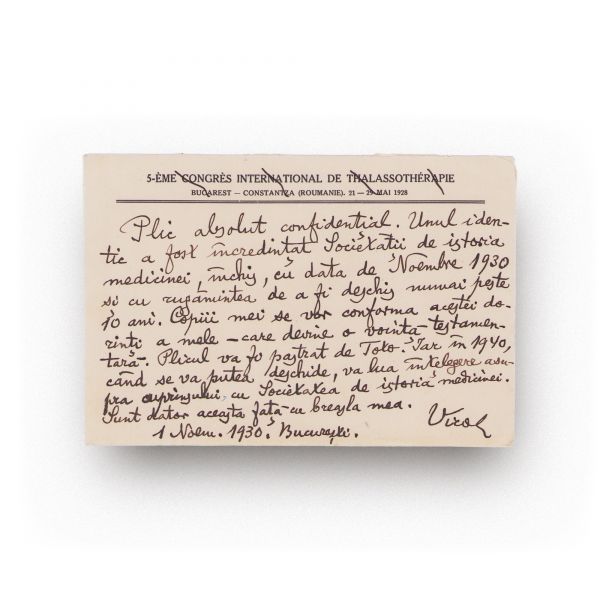 5-ÈME CONGRÈS INTERNATIONAL DE THALASSOTHÉRAPIE
BUCAREST — CONSTANTZA (ROUMANIE). 21 — 29 MAI 1928
Plic absolut confidential. Unul iden-
tic a fost încredintat Societatii de istoria
medicinei, închis, cu data de Noembre 1930
si cu rugămintea de a fi deschis numai peste
10 ani. Copiii mei se vor conforma acestei do-
rinti a mele - care devine o vointa testamen-
tară. Plicul va fi pastrat de Toto. Iar în 1940,
când se va putea deschide, va lua întelegere asu-
pra cuprinsului cu Societatea de istoria medicinei.
Sunt dator aceasta fata cu breasla mea.
1 Noem. 1930. Bucureşti.